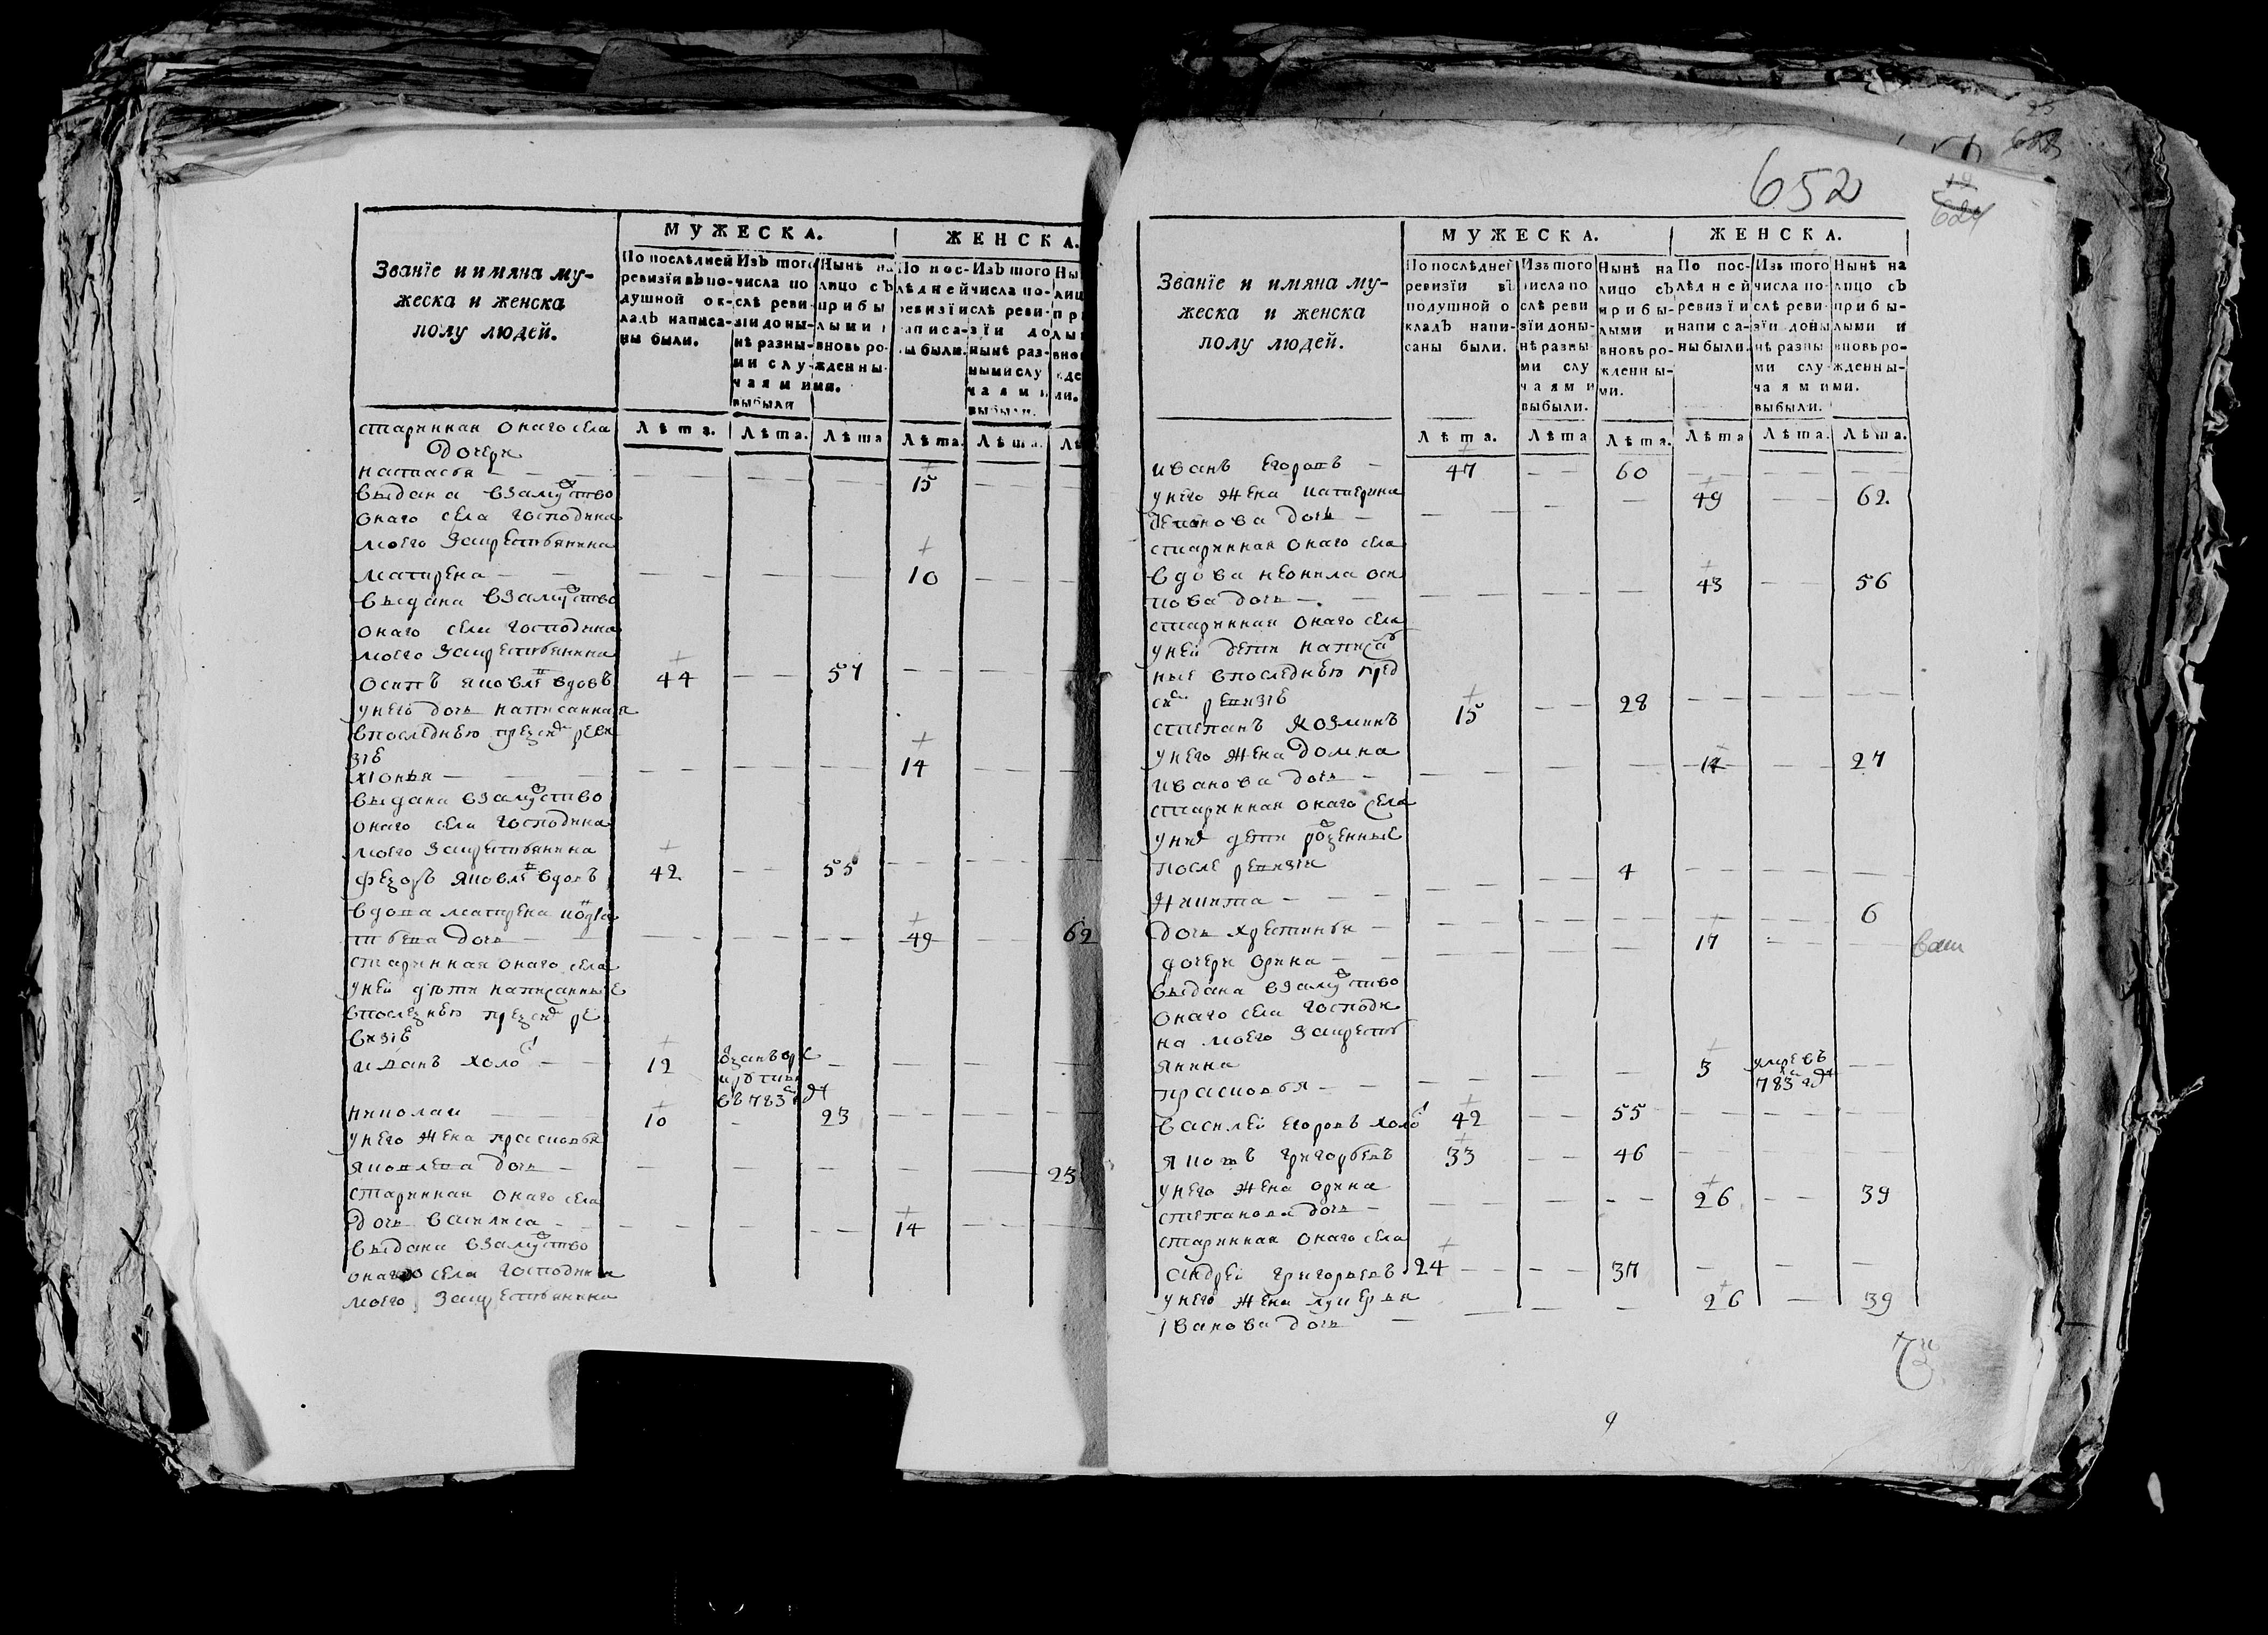 МУЖЕСКА.
ЖЕНСКА.
Званїе и имяна му-
жеска и женска
полу людей.
По послѣдней
ревизїи въ по-
душной ок-
ладъ написа-
ны были.
Изъ того
числа по
слѣ реви-
зїи доны-
нѣ разны-
ми слу-
чаями
выбыли
Нынѣ на
лицо съ
прибы
лыми и
вновь ро-
жденны-
ми.
По пос-
лѣдней
ревизїи
написа-
ны были.
Изъ того
числа по-
слѣ реви-
зїи до
нынѣ раз-
ными слу
чаями
выбыли.
Лѣта. Лѣта. Лѣта Лѣта. Лѣта.
старинная онаго села
дочери
настасья — 15
выдана взамужство
онаго села господина
моего закрестьянина
матрена — 10
выдана взамужство
онаго села господина
моего закрестьянина
осипъ яковлевъ вдовъ 44 — 57
унего дочь написанная
впоследнею пред сего реви
зіе
хіонья — 14
выдана взамужство
онаго села господина
моего закрестьянина
федоръ яковлевъ вдовъ 42 — 55
вдова матрена кондра
тьева дочь — 49 — 62
старинная онаго села
уней дѣти написанные
впоследнею пред сего ре
визіе
иванъ холо 12
въ 783 году
николаи 10 - 23
унего жена прасковья
яковлева дочь — 23
старинная онаго села
дочь василиса — 14
выдана взамужство
онаго села господина
моего закрестьянина
652
624
МУЖЕСКА.
ЖЕНСКА.
Званїе и имяна му-
жеска и женска
полу людей.
По послѣдней
ревизїи въ
подушной о
кладъ напи-
саны были.
Изъ того
числа по
слѣ реви
зїи доны-
нѣ разны-
ми слу
чаями
выбыли.
Нынѣ на
лицо съ
прибы-
лыми и
вновь ро-
жденны-
ми.
По пос-
лѣдней
ревизїи
написа-
ны были.
Изъ того
числа по-
слѣ реви-
зїи доны
нѣ разны
ми слу-
чаями
выбыли.
Нынѣ на
лицо съ
прибы-
лыми и
вновь ро-
жденны-
ми.
Лѣта. Лѣта Лѣта. Лѣта Лѣта. Лѣта.
иванъ егоровъ — 47 — 60
унего жена катерина 49 — 62.
дочь —
старинная онаго села
вдова неонила оси 43 — 56
пова дочь —
старинная онаго села
уней дети написан
ные впоследнею пред
сего ревизіе
степанъ козминъ 15 — 28
унего жена домна
иванова дочь — 14 — 27
старинная онаго села
уних дети рожденные
после ревизіи
никита — 4
дочь хрестинья — 6
дочери орина — 17
выдана взамужство
онаго села господи
на моего закресть
янина
прасковья — 3 умре въ
783 году
василеи егоровъ холо 42 — 55
яковъ григорьевъ 33 — 46
унего жена орина
степанова дочь — 26 — 39
старинная онаго села
андреи григорьевъ 24 — 37
унего жена лукерья 26 — 39
іванова дочь —